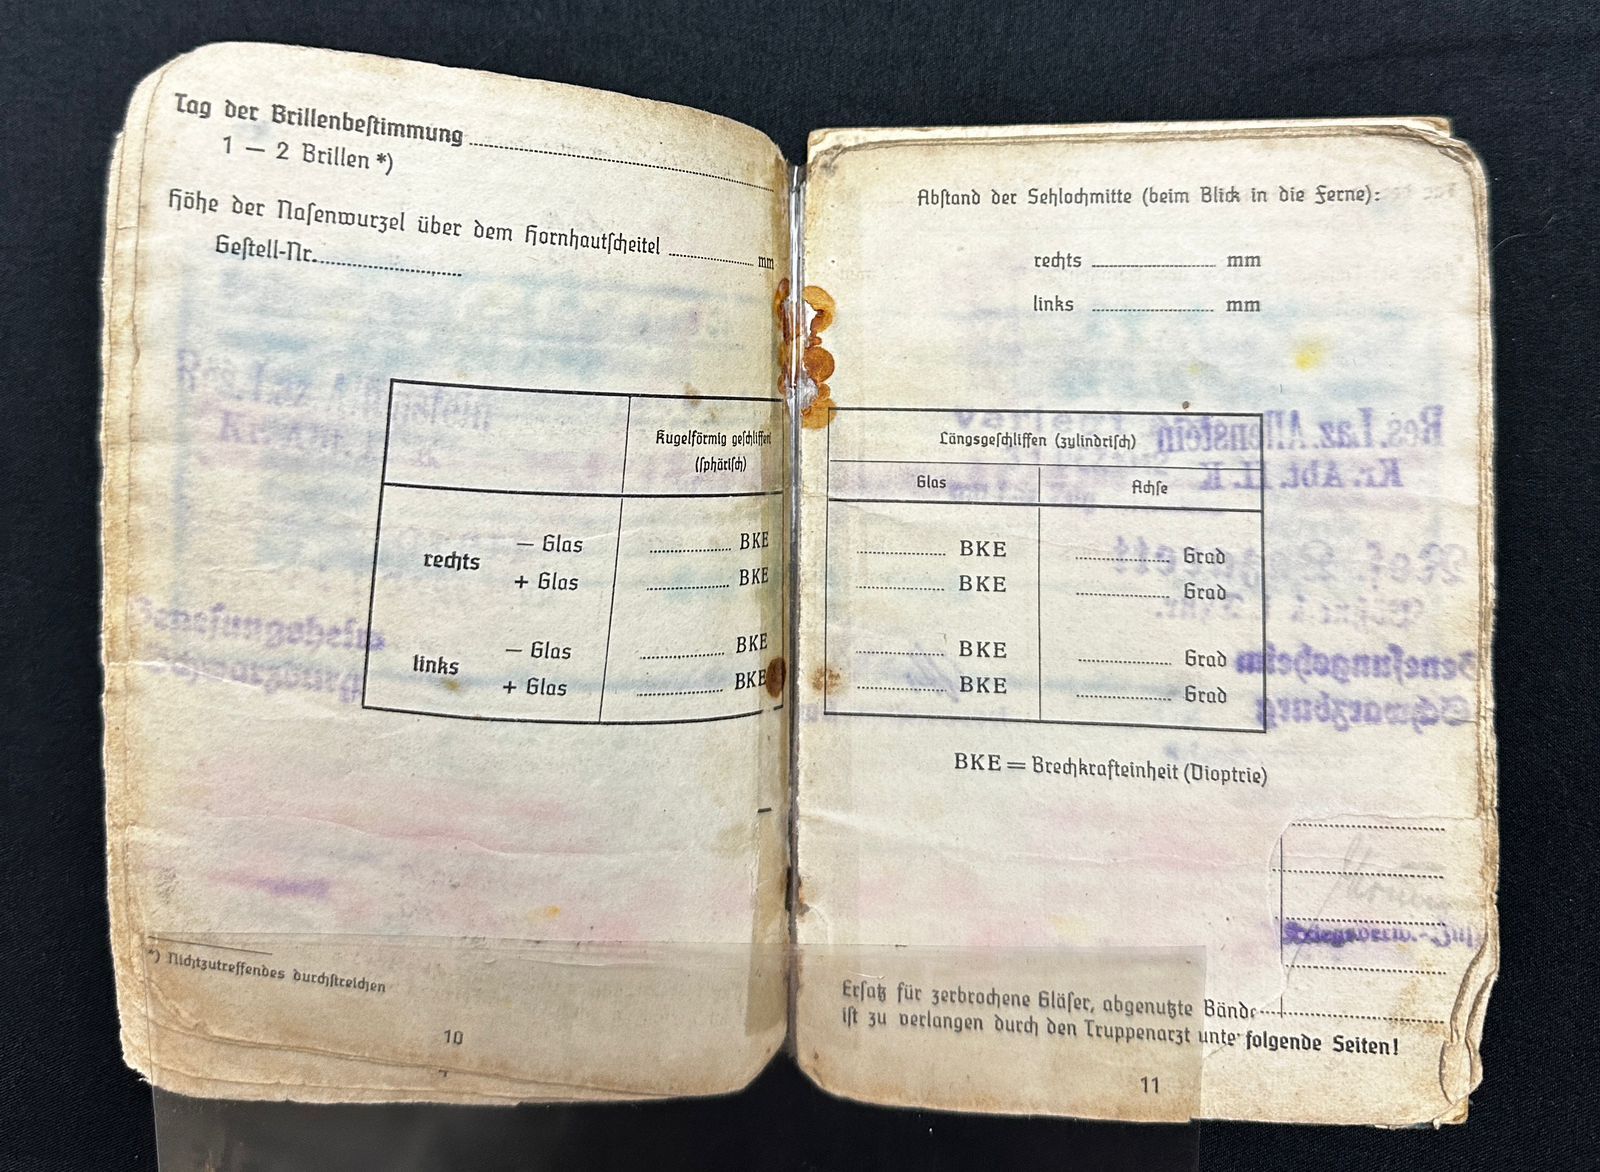 Tag der Brillenbestimmung
1 — 2 Brillen *)
Höhe der Nasenwurzel über dem Hornhautscheitel ............ mm
Gestell-Nr.
Kugelförmig geschliffen
(sphärisch)
rechts
— Glas ............ BKE
+ Glas ............ BKE
links
— Glas ............ BKE
+ Glas ............ BKE
*) Nichtzutreffendes durchstreichen
10
Abstand der Sehlochmitte (beim Blick in die Ferne):
rechts ............ mm
links ............ mm
Längsgeschliffen (zylindrisch)
Glas Achse
............ BKE ............ Grad
............ BKE ............ Grad
............ BKE ............ Grad
............ BKE ............ Grad
Res. Laz. Allenstein
Kr. Abt. II. K
Genesungsheim
Schwarzburg
BKE = Brechkrafteinheit (Dioptrie)
Ersatz für zerbrochene Gläser, abgenutzte Bände
ist zu verlangen durch den Truppenarzt unte
folgende Seiten!
11